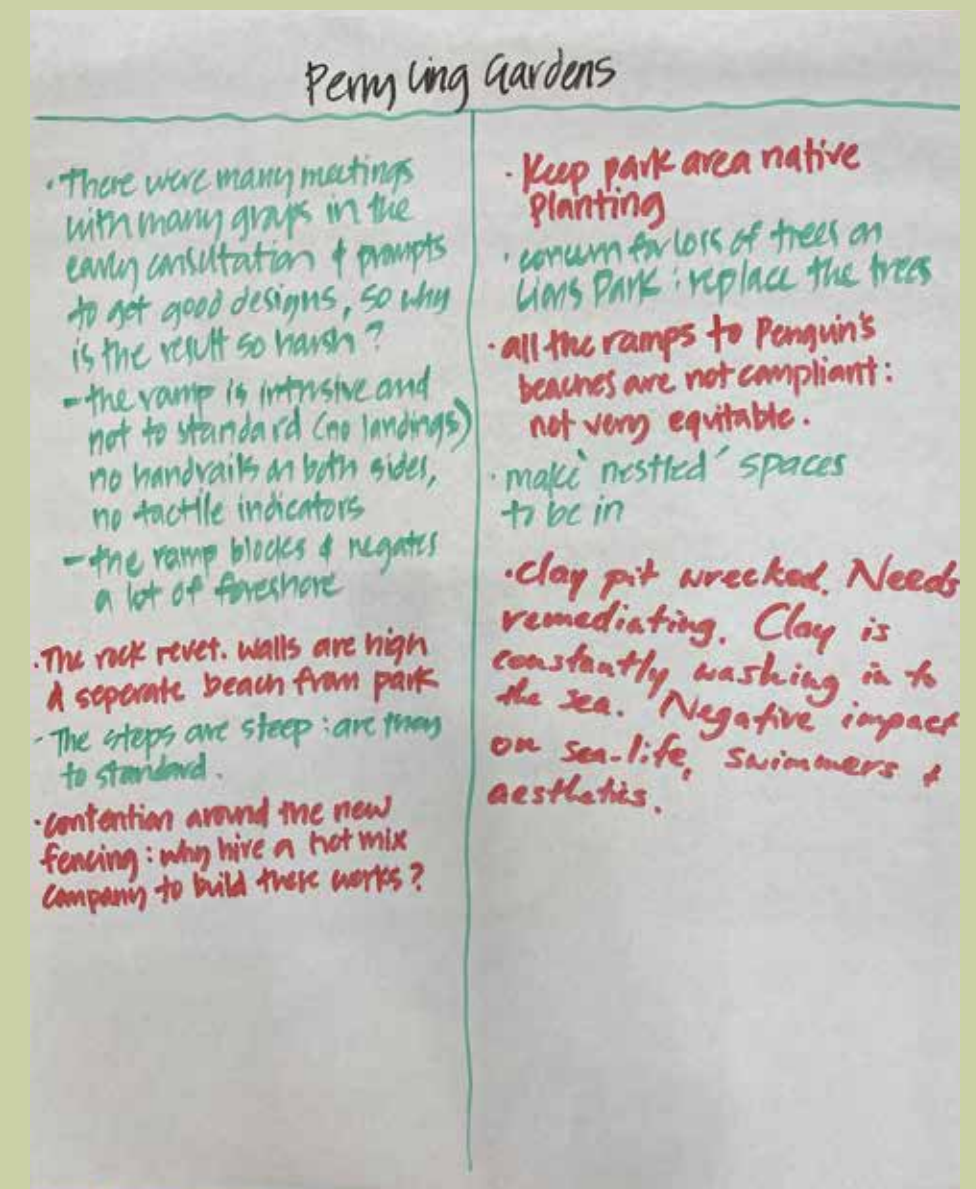 Perry Ling Gardens
• There were many meetings
with many groups in the
early consultation & prompts
to get good designs, so why
is the result so harsh?
- the ramp is intrusive and
not to standard (no landings)
no handrails on both sides,
no tactile indicators
- the ramp blocks & negates
a lot of foreshore
• The rock revet. walls are high
& seperate beach from park
- The steps are steep : are they
to standard.
• contention around the new
fencing : why hire a hot mix
company to build these works?
• Keep park area native
planting
• concern for loss of trees on
Lions Park : replace the trees
• all the ramps to Penguin's
beaches are not compliant :
not very equitable.
• make 'nestled' spaces
to be in
• Clay pit wrecked. Needs
remediating. Clay is
constantly washing in to
the sea. Negative impact
on sea-life, swimmers &
aesthetics.